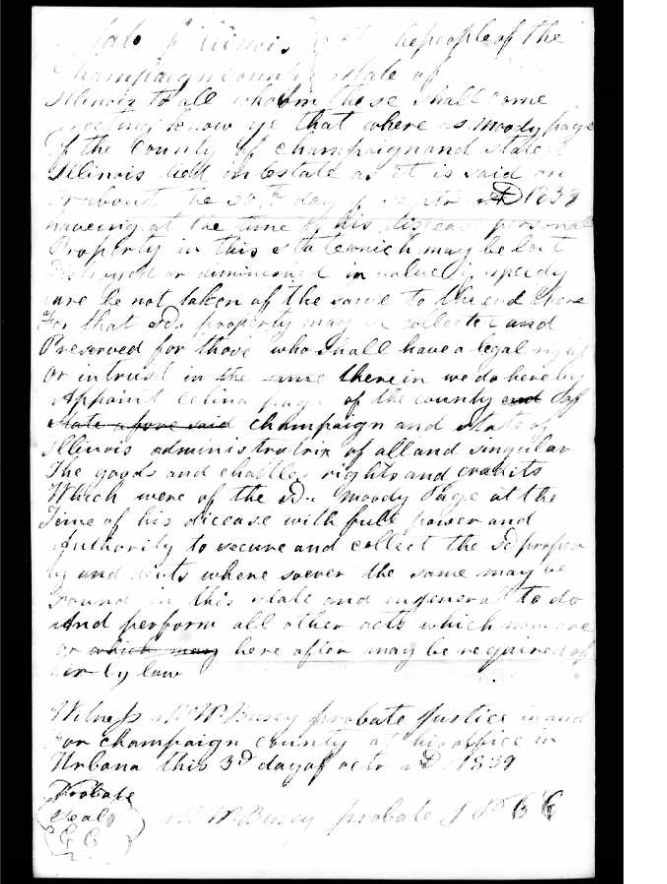 State of Illinois the people of the
Champaign County State of
Illinois to all whom these shall come
greeting know ye that where as Moody page
of the County of champaign and state of
Illinois died intestate as it is said on
or about the 30th day of Septr AD 1839
haveing at the time of his diseas personal
Property in this state which may be lost
Destroyed or diminished in value if speedy
care be not taken of the same to the end there
for that sd property may be collected and
Preserved for those who shall have a legal right
or intrust in the same therein we do hereby
Appoint page of the county and of
State afore said champaign and state of
Illinois administratrix of all and singular
The goods and chattles rights and credits
Which were of the sd Moody Page at the
Time of his dicease with full power and
Authority to secure and collect the sd proper
ty and debts where soever the same may be
found in this state and in general to do
And perform all other acts which now are
or which may here after may be required of
her by law
Witness M W Busey probate justice in and
For champaign county at his office in
Urbana this 3d day of octr AD 1839
Probate
Seal
M W Busey probate